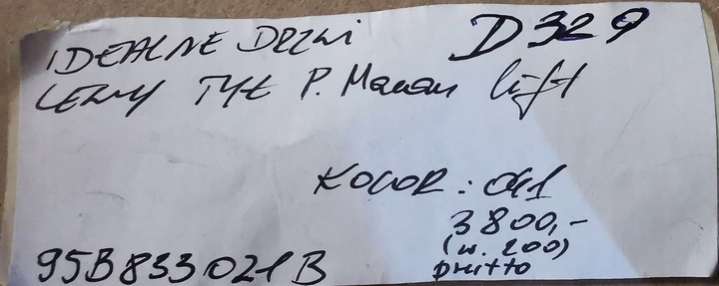 IDEALNE DRZWI D329
LEWY TYŁ P. Macan lift
KOLOR: 041
3800,-
(w. 200)
brutto
95B833021B